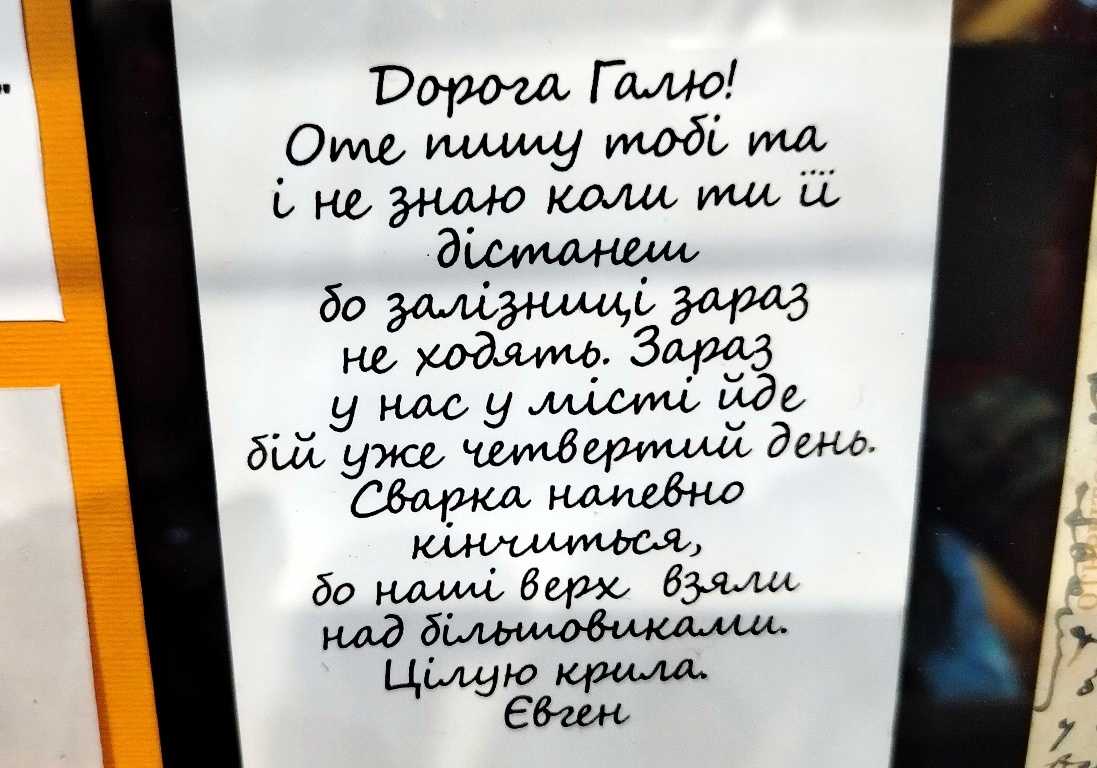 Дорога Галю!
Оте пишу тобі та
і не знаю коли ти її
дістанеш
бо залізниці зараз
не ходять. Зараз
у нас у місті йде
бій уже четвертий день.
Сварка напевно
кінчиться,
бо наші верх взяли
над більшовиками.
Цілую крила.
Євген